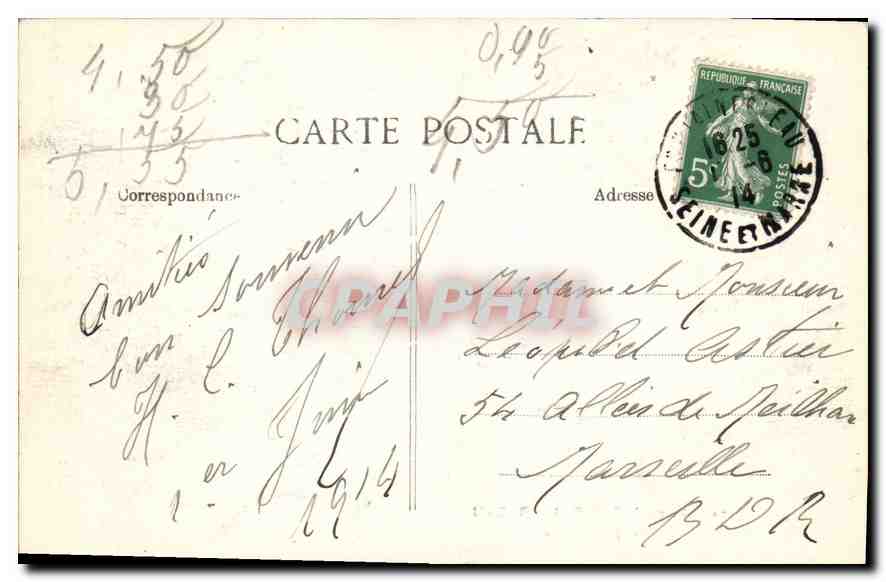 4,50
50
,75
6,55
0,90
5
CARTE POSTALE
Correspondance
Adresse
REPUBLIQUE FRANÇAISE
5
POSTES
16 25
-6
14
SEINE ET MARNE
CPAPHIL
Amitiés
bon souvenir
H. C. Thomel
1er Juin
1914
Madame et Monsieur
Léopold Astier
54 Allées de Meilhan
Marseille
B D R